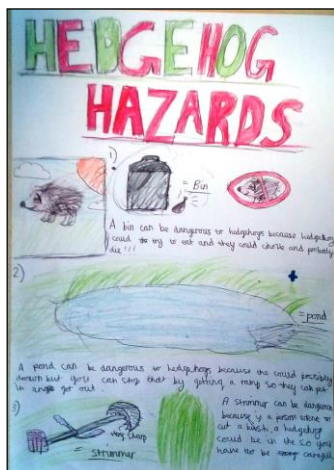 HEDGEHOG
HAZARDS
1)
= Bin
A bin can be dangerous to hedgehogs because hedgehogs
could to try to eat and they could choke and probably
die!!!
2)
= pond
A pond can be dangerous to hedgehogs because the could possibly
drown but you can stop that by getting a ramp so they can get
in and get out
3)
very sharp
= strimmer
A strimmer can be dangerous
because if a person whent to
cut a bush, a hedgehog
could be in the so you
have got to be careful